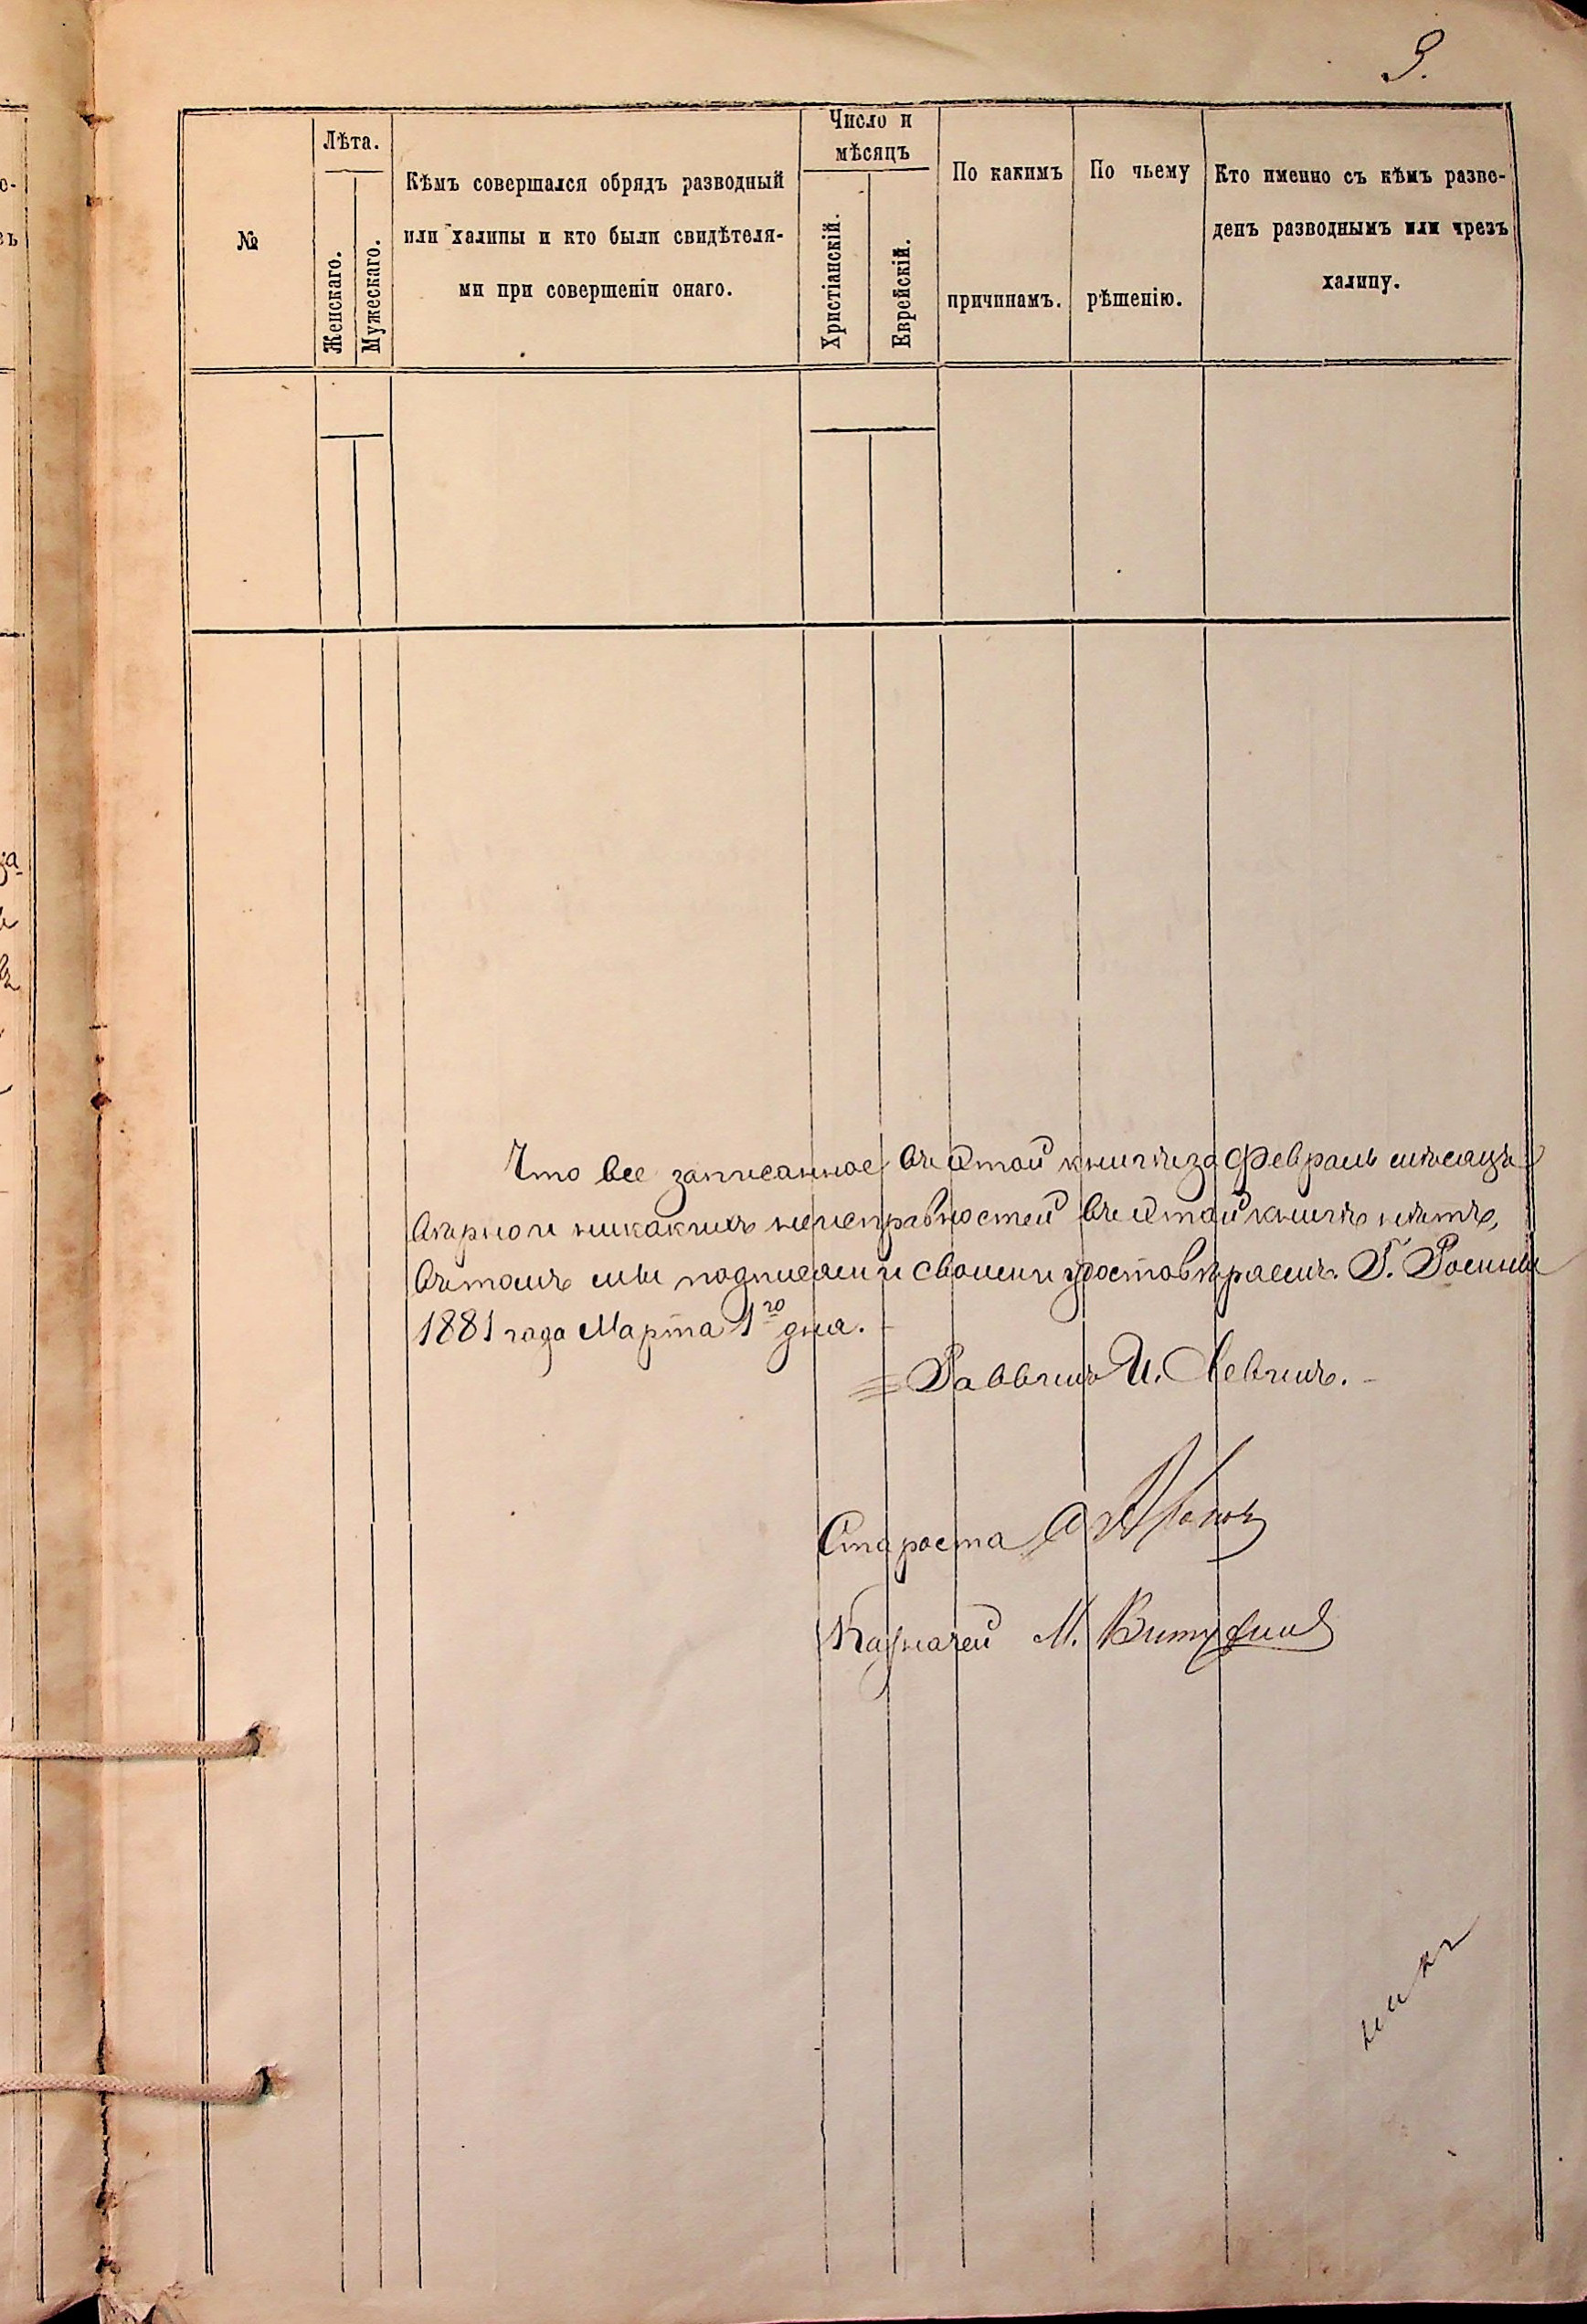 9.
№
Лѣта.
Женскаго.
Мужескаго.
Кѣмъ совершался обрядъ разводный
или халицы и кто были свидѣтеля-
ми при совершеніи онаго.
Число и
мѣсяцъ
Христіанскій.
Еврейскій.
По какимъ
причинамъ.
По чьему
рѣшенію.
Кто именно съ кѣмъ разве-
денъ разводнымъ или чрезъ
халицу.
Что все записанное въ этой книгѣ за Февраль мѣсяцъ
вѣрно и никакихъ неисправностей въ этой книгѣ нѣтъ,
въ томъ мы подписами своими удостовѣряемъ. Г. Ромны
1881 года Марта 1го дня.
Раввинъ И. Левинъ.
Староста
Казначей М.